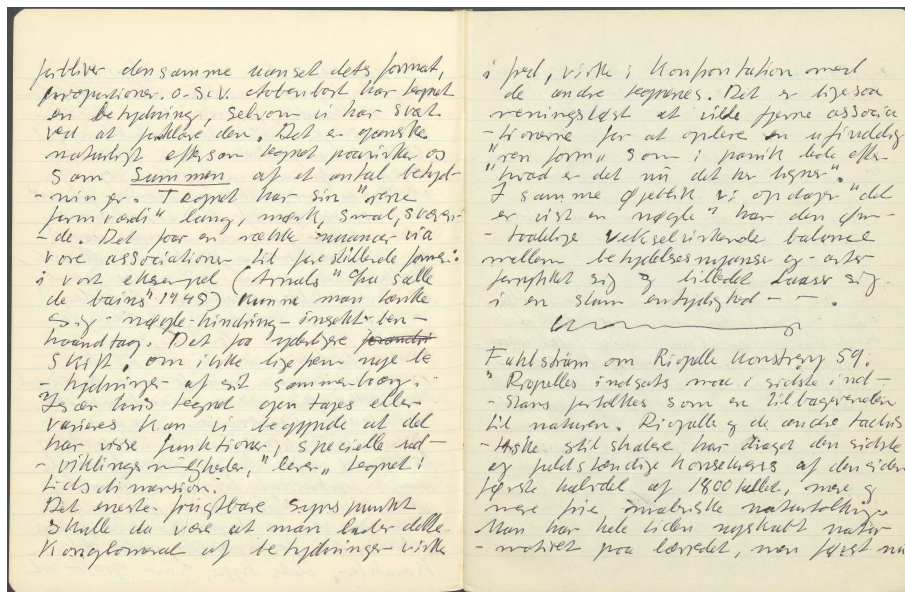 forbliver den samme uanset dets format,
proportioner. o.s.v. Tegnet har
en betydning, selvom vi har svært
ved at forklare den. Det er ganske
naturligt eftersom tegnet paavirker os
som Summen af et antal betyd-
-ninger. Tegnet har sin "rene
formværdi" lang, mørk, smal, svævn-
-de. Det faar en række nuancer via
vore associationer til forestillende former.
i vort eksempel ( "La Salle
de bains" 1948) kunne man tænke
sig - nøgle - hindring - insekt - ben -
haandtag. Det faa yderligere
Skift, om ikke ligefrem nye be
-tydninger af sit sammenhæng.
Især hvis tegnet gentages eller
varieres kan vi begynde at det
har visse funktioner, specielle ud-
-viklingsmuligheder, "lever" tegnet i
tidsdimension.
Det eneste frugtbare Synspunkt
Skulle da være at man lader dette
Konglomerat af betydninger virke
i fred, virke i Konfrontation med
de andre tegnenes. Det er ligesaa
meningsløst at ville fjerne associa
-tionerne for at opleve en ufindelig
"ren form" som i panik lede efter
"hvad er det nu det her ligner".
I samme Øjeblik vi opdager "det
er vist en nøgle" har den øm-
-taalige vekselvirkende balance
mellem betydelsesnyanser og -arter
forrykket sig og billedet laaser sig
i en slum entydighed - - .
Fahlstrøm om Riopelle Konstrevy 59:
" Riopelles indsats maa i sidste ind-
-stans fortolkes som en tilbagevenden
til naturen. Riopelle og de andre tachis
-tiske stilskabere har draget den sidste
og fuldstændige Konsekvens af den siden
første halvdel af 1800 tallet, mere og
mere frie maleriske naturtolkning.
Man har hele tiden nyskabt natur
-motivet paa lærredet, men først nu